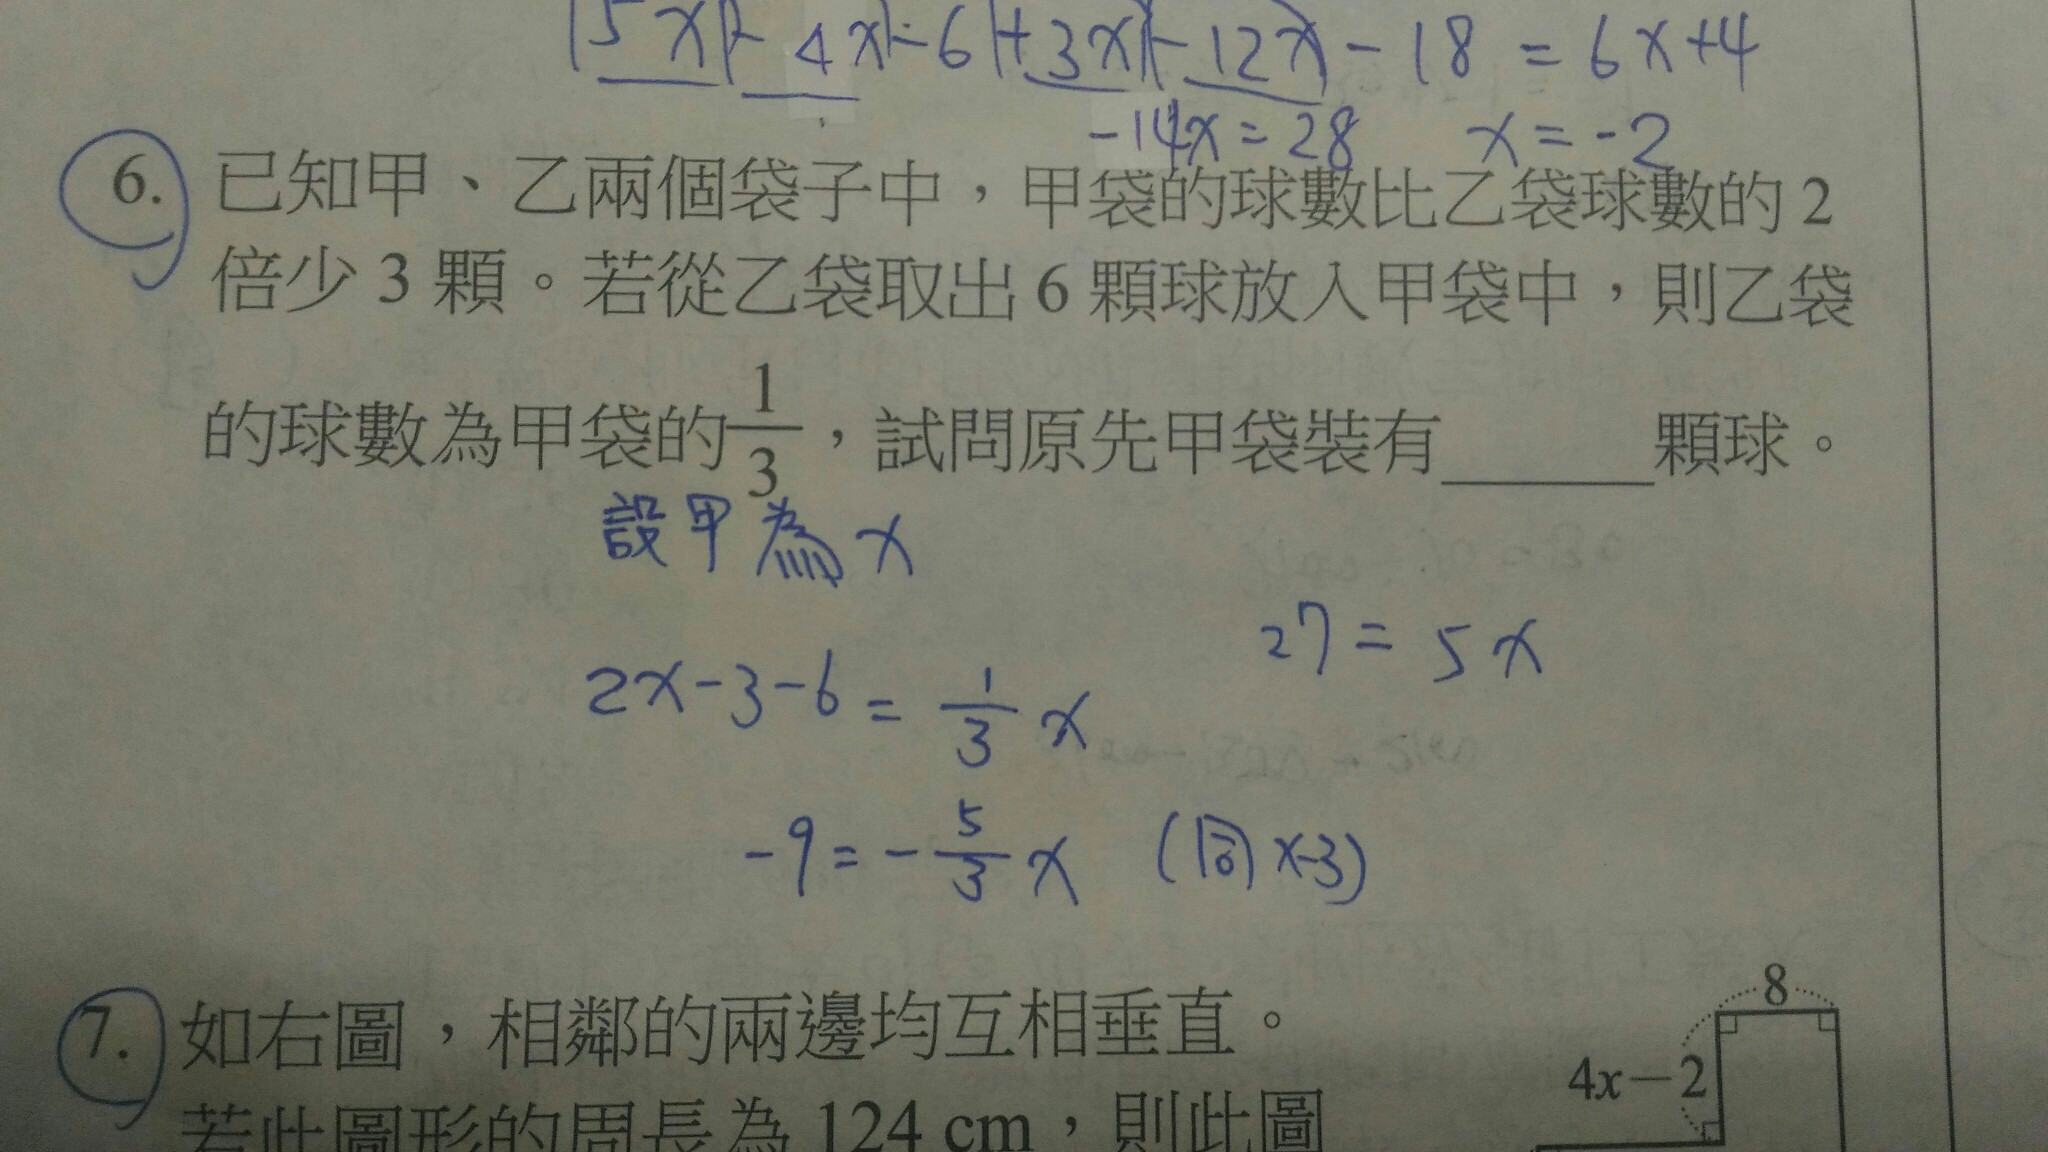 15x - 4x - 6 + 3x - 12x - 18 = 6x + 4
-14x = 28 x = -2
6. 已知甲、乙兩個袋子中，甲袋的球數比乙袋球數的 2
倍少 3 顆。若從乙袋取出 6 顆球放入甲袋中，則乙袋
的球數為甲袋的 1/3，試問原先甲袋裝有______顆球。
設甲為 x
27 = 5x
2x - 3 - 6 = 1/3 x
-9 = - 5/3 x (同 x-3)
7. 如右圖，相鄰的兩邊均互相垂直。
8
4x－2
若此圖形的周長為 124 cm，則此圖